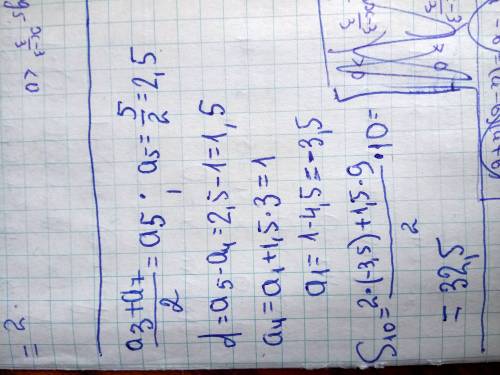 = 2
(a₃+a₇)/2 = a₅ ; a₅ = 5/2 = 2,5
d = a₅ - a₄ = 2,5 - 1 = 1,5
a₄ = a₁ + 1,5·3 = 1
a₁ = 1 - 4,5 = -3,5
S₁₀ = (2·(-3,5) + 1,5·9)/2 · 10 =
= 32,5